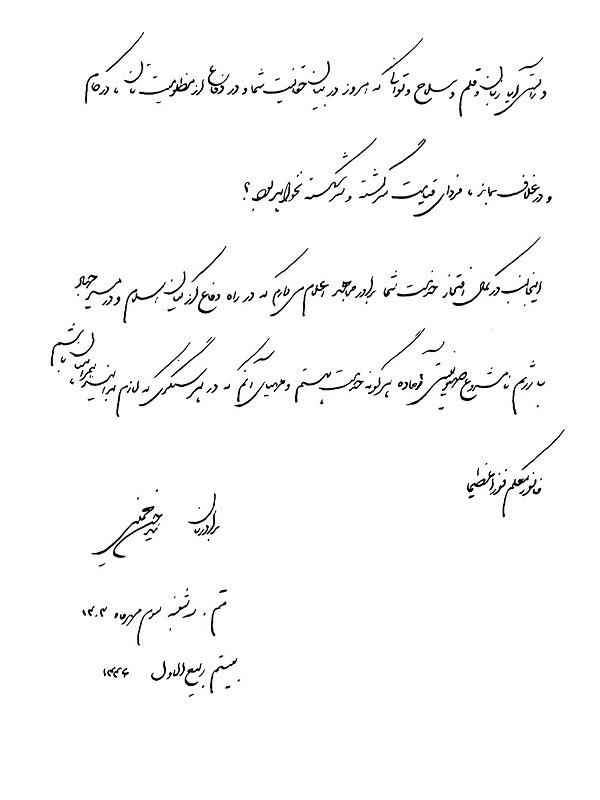 و راستی آیا زبان و قلم و سلاح و توانی که امروز در بیان حقانیت شما و در دفاع از مظلومیت تان، در کام
و در غلاف بماند، فردای قیامت سرگشته و سرشکسته نخواهد بود؟
اینجانب در کمال افتخار خدمت شما برادر مجاهد اعلام می دارم که در راه دفاع از کیان اسلام و در مسیر جهاد
با رژیم نامشروع صهیونیستی آماده هرگونه خدمت هستم و مهیای آنم که در هر سنگری که لازم بدانید همراهتان باشم
فافوز معکم فوزا عظیما
برادرتان
سید حسن خمینی
قم . سه شنبه سوم مهرماه ۱۴۰۳
بیستم ربیع الاول ۱۴۴۶